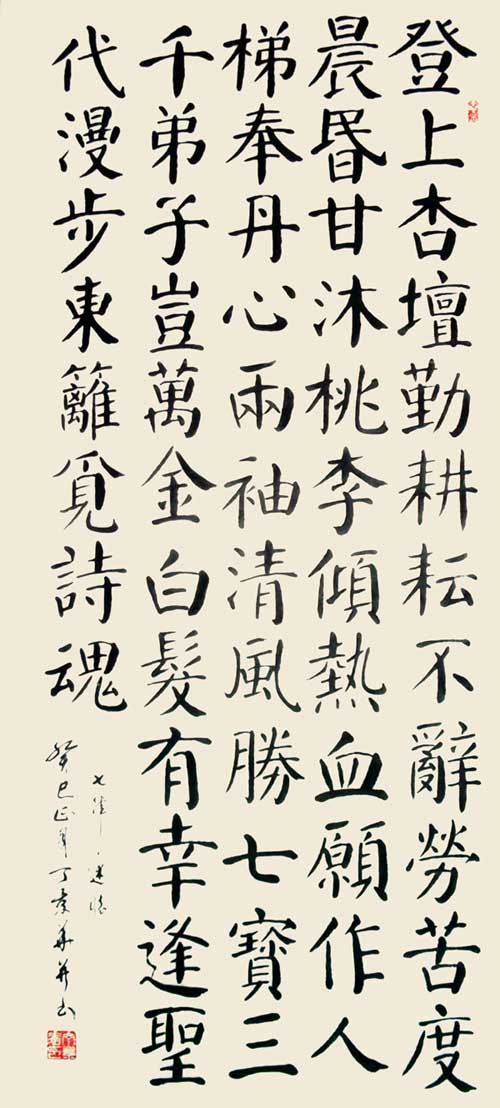 登上杏壇勤耕耘不辭勞苦度
晨昬甘沐桃李傾熱血願作人
梯奉丹心兩袖清風勝七寶三
千弟子豈萬金白髮有幸逢聖
代漫步東籬覓詩魂
七律·述懷
癸巳 丁 華并书